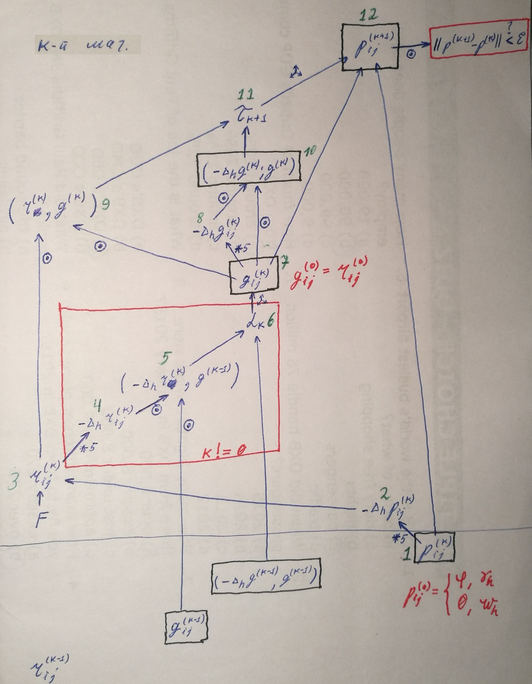 к-й шаг.
12
p_{ij}^{(k+1)}
|| p^{(k+1)} - p^{(k)} || <^{?} ε
11
τ_{k+1}
10
(-Δ_h g^{(k)}, g^{(k)})
(r^{(k)}, g^{(k)}) 9
8
-Δ_h g_{ij}^{(k)}
*5
7
g_{ij}^{(k)}
g_{ij}^{(0)} = r_{ij}^{(0)}
α_k 6
5
(-Δ_h r^{(k)}, g^{(k-1)})
4
-Δ_h r_{ij}^{(k)}
*5
k != 0
3 r_{ij}^{(k)}
F
2
-Δ_h p_{ij}^{(k)}
*5
1 p_{ij}^{(k)}
(-Δ_h g^{(k-1)}, g^{(k-1)})
p_{ij}^{(0)} = { φ, γ_h
0, ω_h
g_{ij}^{(k-1)}
r_{ij}^{(k-1)}